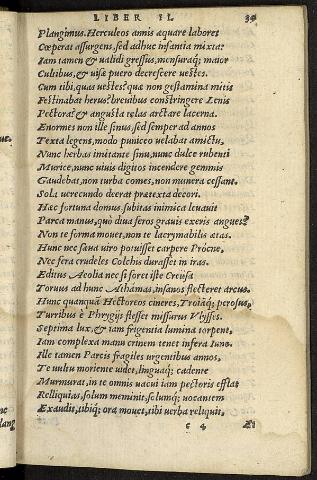 LIBER II. 39
Plangimus. Herculeos armis æquare labores
Cœperat assurgens, sed adhuc infantia mixta:
Iam tamen & ualidi gressus, mensuraq; maior
Cultibus, & uisæ puero decrescere uestes.
Cum tibi, quas uestes? quæ non gestamina mitis
Festinabat herus? breuibus constringere Lenis
Pectora? & angusta telas arctare lacerna.
Enormes non ille sinus, sed semper ad annos
Texta legens, modo puniceo uelabat amictu,
Nunc herbas imitante sinu, nunc dulce rubenti
Murice, nunc uiuis digitos incendere gemmis
Gaudebat, non turba comes, non munera cessant.
Sola uerecundo deerat prætexta decori.
Hæc fortuna domus. subitas inimica leuauit
Parca manus, quò diua feros grauis exeris angues?
Non te forma mouet, non te lacrymabilis ætas.
Hunc nec sæua uiro potuisset carpere Procne,
Nec fera crudeles Colchis durasset in iras.
Editus Aeolia nec si foret iste Creusa
Toruus ad hunc Athámas, insanos flecteret arcus.
Hunc quanquã Hectoreos cineres, Troiãq; perosus,
Turribus è Phrygijs flesset missurus Vlysses.
Septima lux, & iam frigentia lumina torpent,
Iam complexa manu crinem tenet infera Iuno.
Ille tamen Parcis fragiles urgentibus annos,
Te uultu moriente uidet, linguaq; cadente
Murmurat, in te omnis uacui iam pectoris efflat
Relliquias, solum meminit, solumq; uocantem
Exaudit, tibiq; ora mouet, tibi uerba reliquit.
e 4 Et
ue.
nc
lang